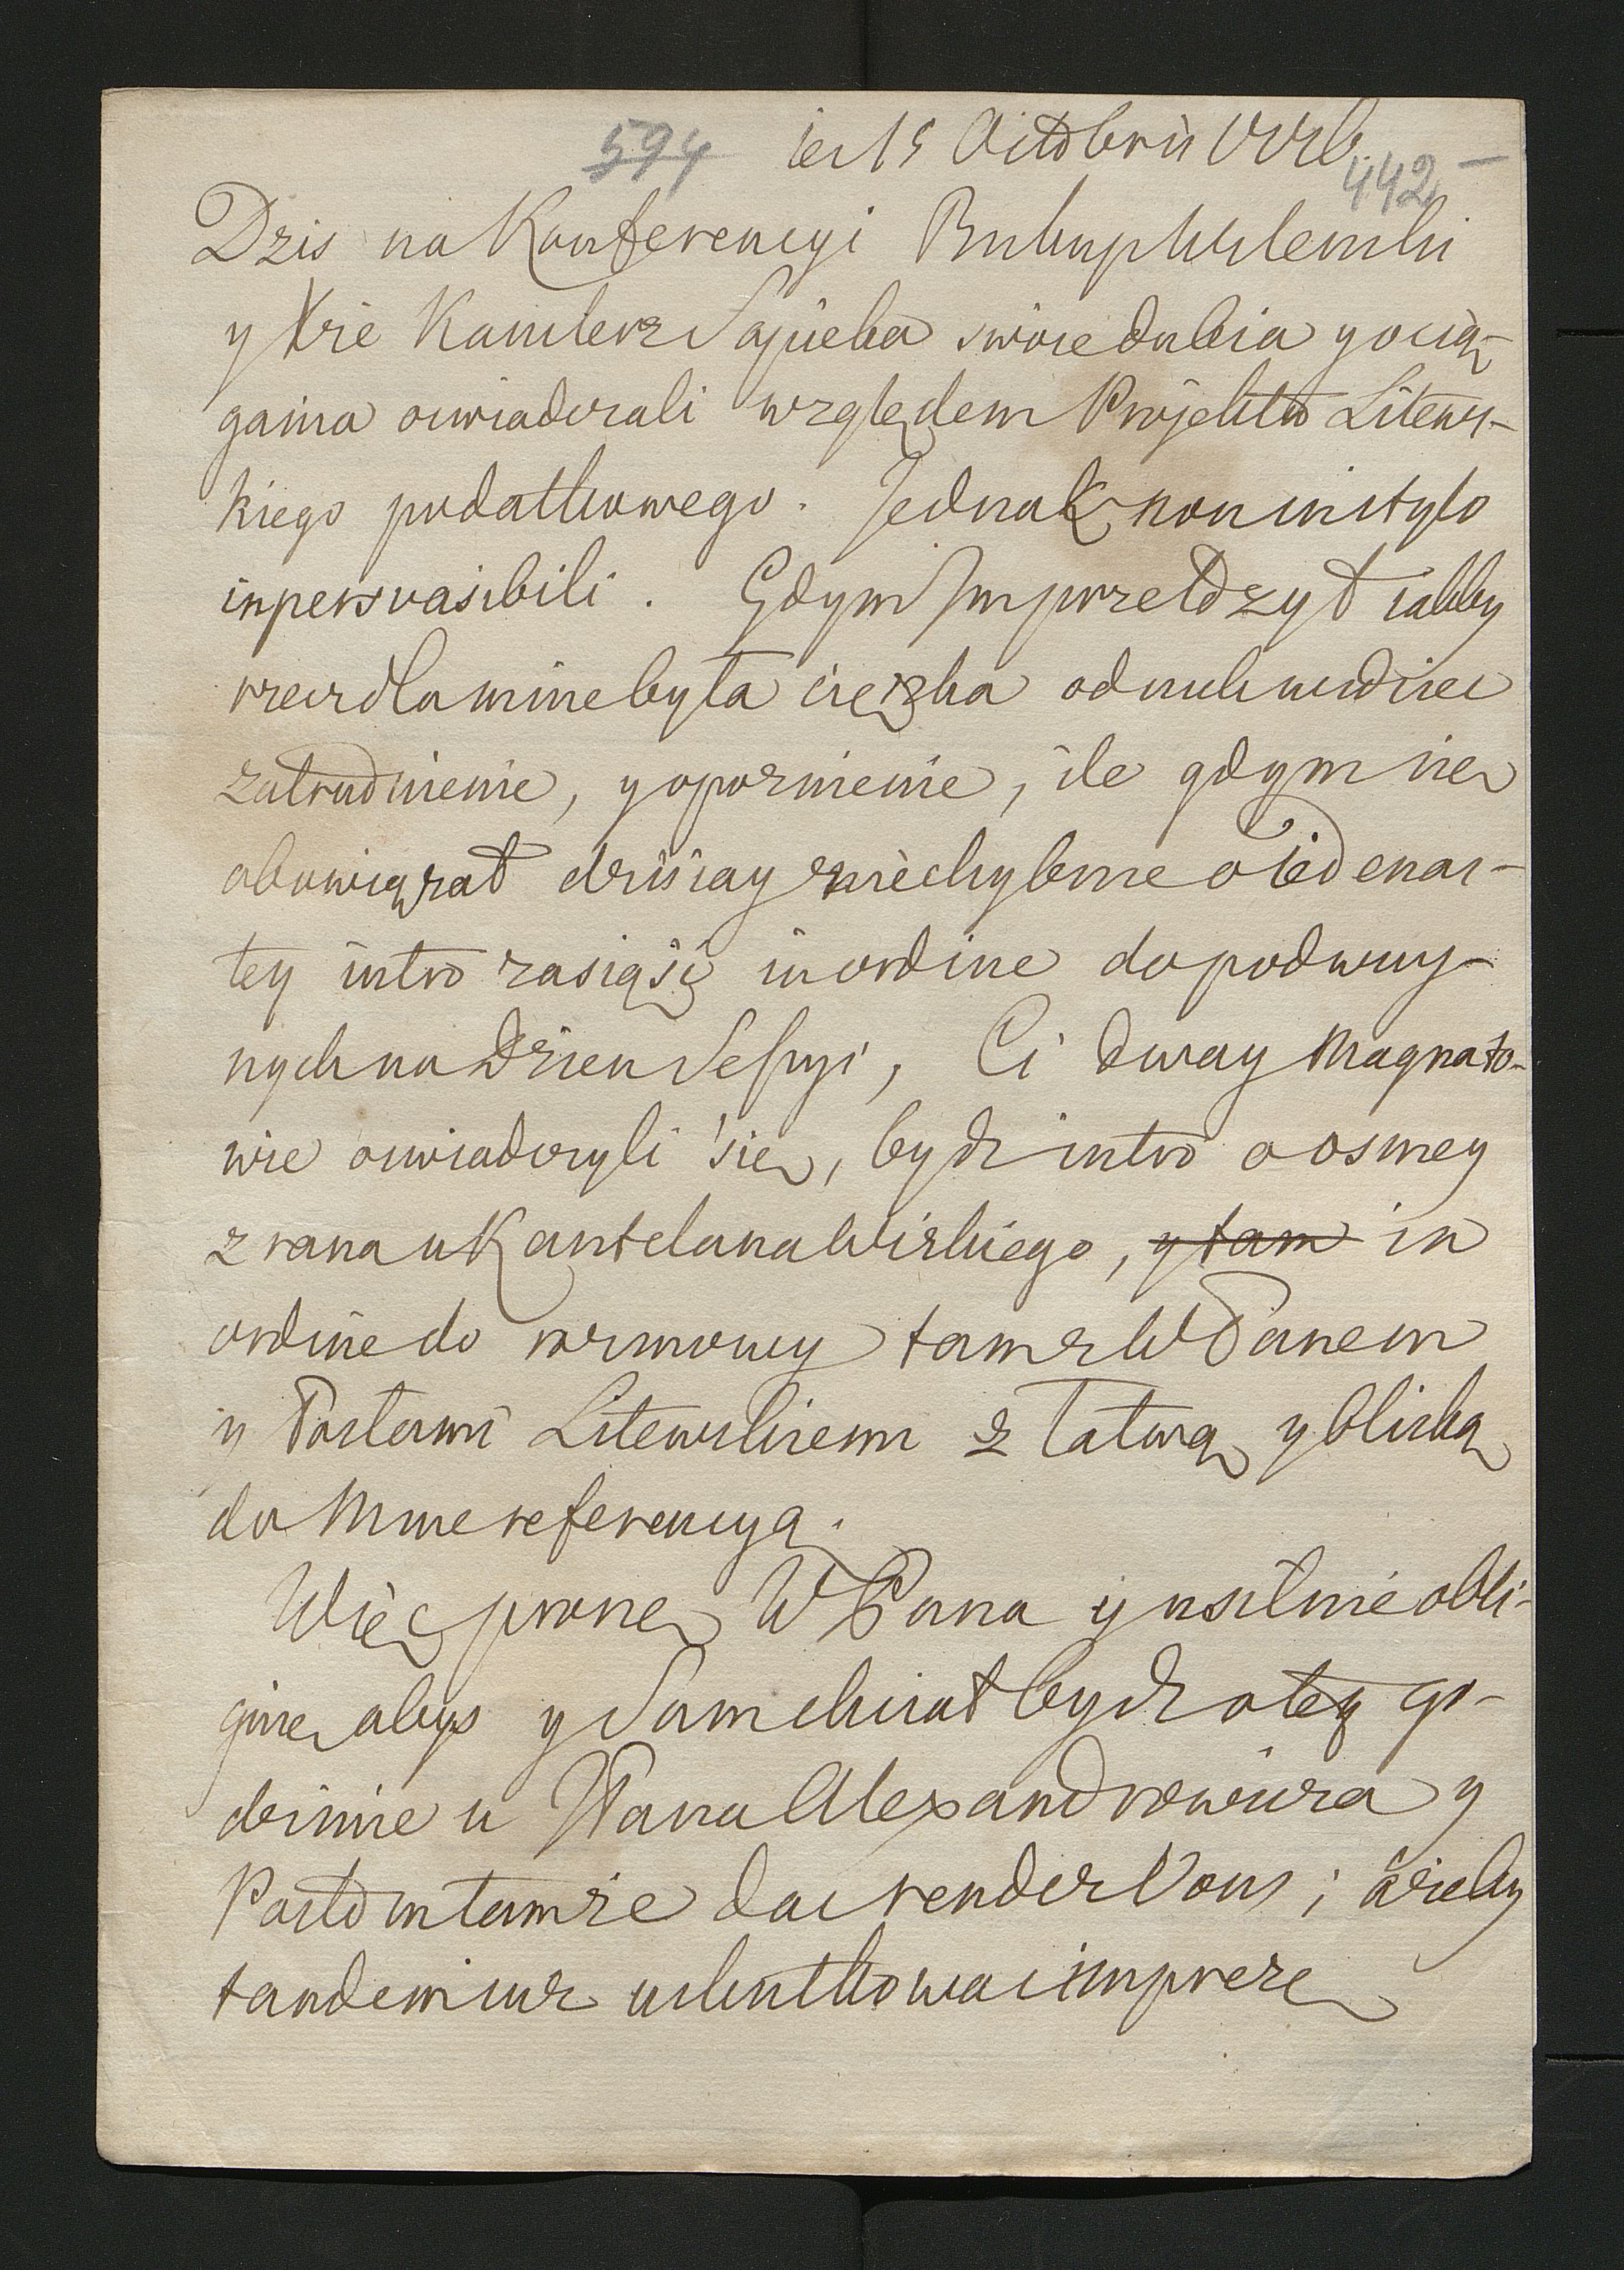 594 15 Octobris
442
Dzis na Konferencyi Biskup Wilenski
y Xże Kanclerz Sapieha swoie dubia y ocią-
gania oswiadczali względem Projektu Litews-
kiego podatkowego. Jednak non in stylo
inpersvasibili. Gdym Im przełożył iakby
rzecz dla mnie była cięzka od nich widziec
zatrudnienie, y opoznienie, ile gdym się
obowiązał dzisiay niechybnie o iedenas-
tey iutro zasiąść in ordine do podwuy-
nych na Dzien Sessyi, Ci dway Magnato-
wie oswiadczyli się, bydz iutro o osmey
z rana u Kasztelana Wizkiego, y tam in
ordine do rozmowy tam z WPanem
y Posłami Litewskiemi z łatwą y bliską
do Mnie referencyą.
Więc proszę WPana y usilnie obli-
guię abys y Sam chciał bydz o tey go-
dzinie u Pana Alexandrowicza y
Posłom tamze dac rendez Vous; azeby
tandem iuz uskutkowac imprezę